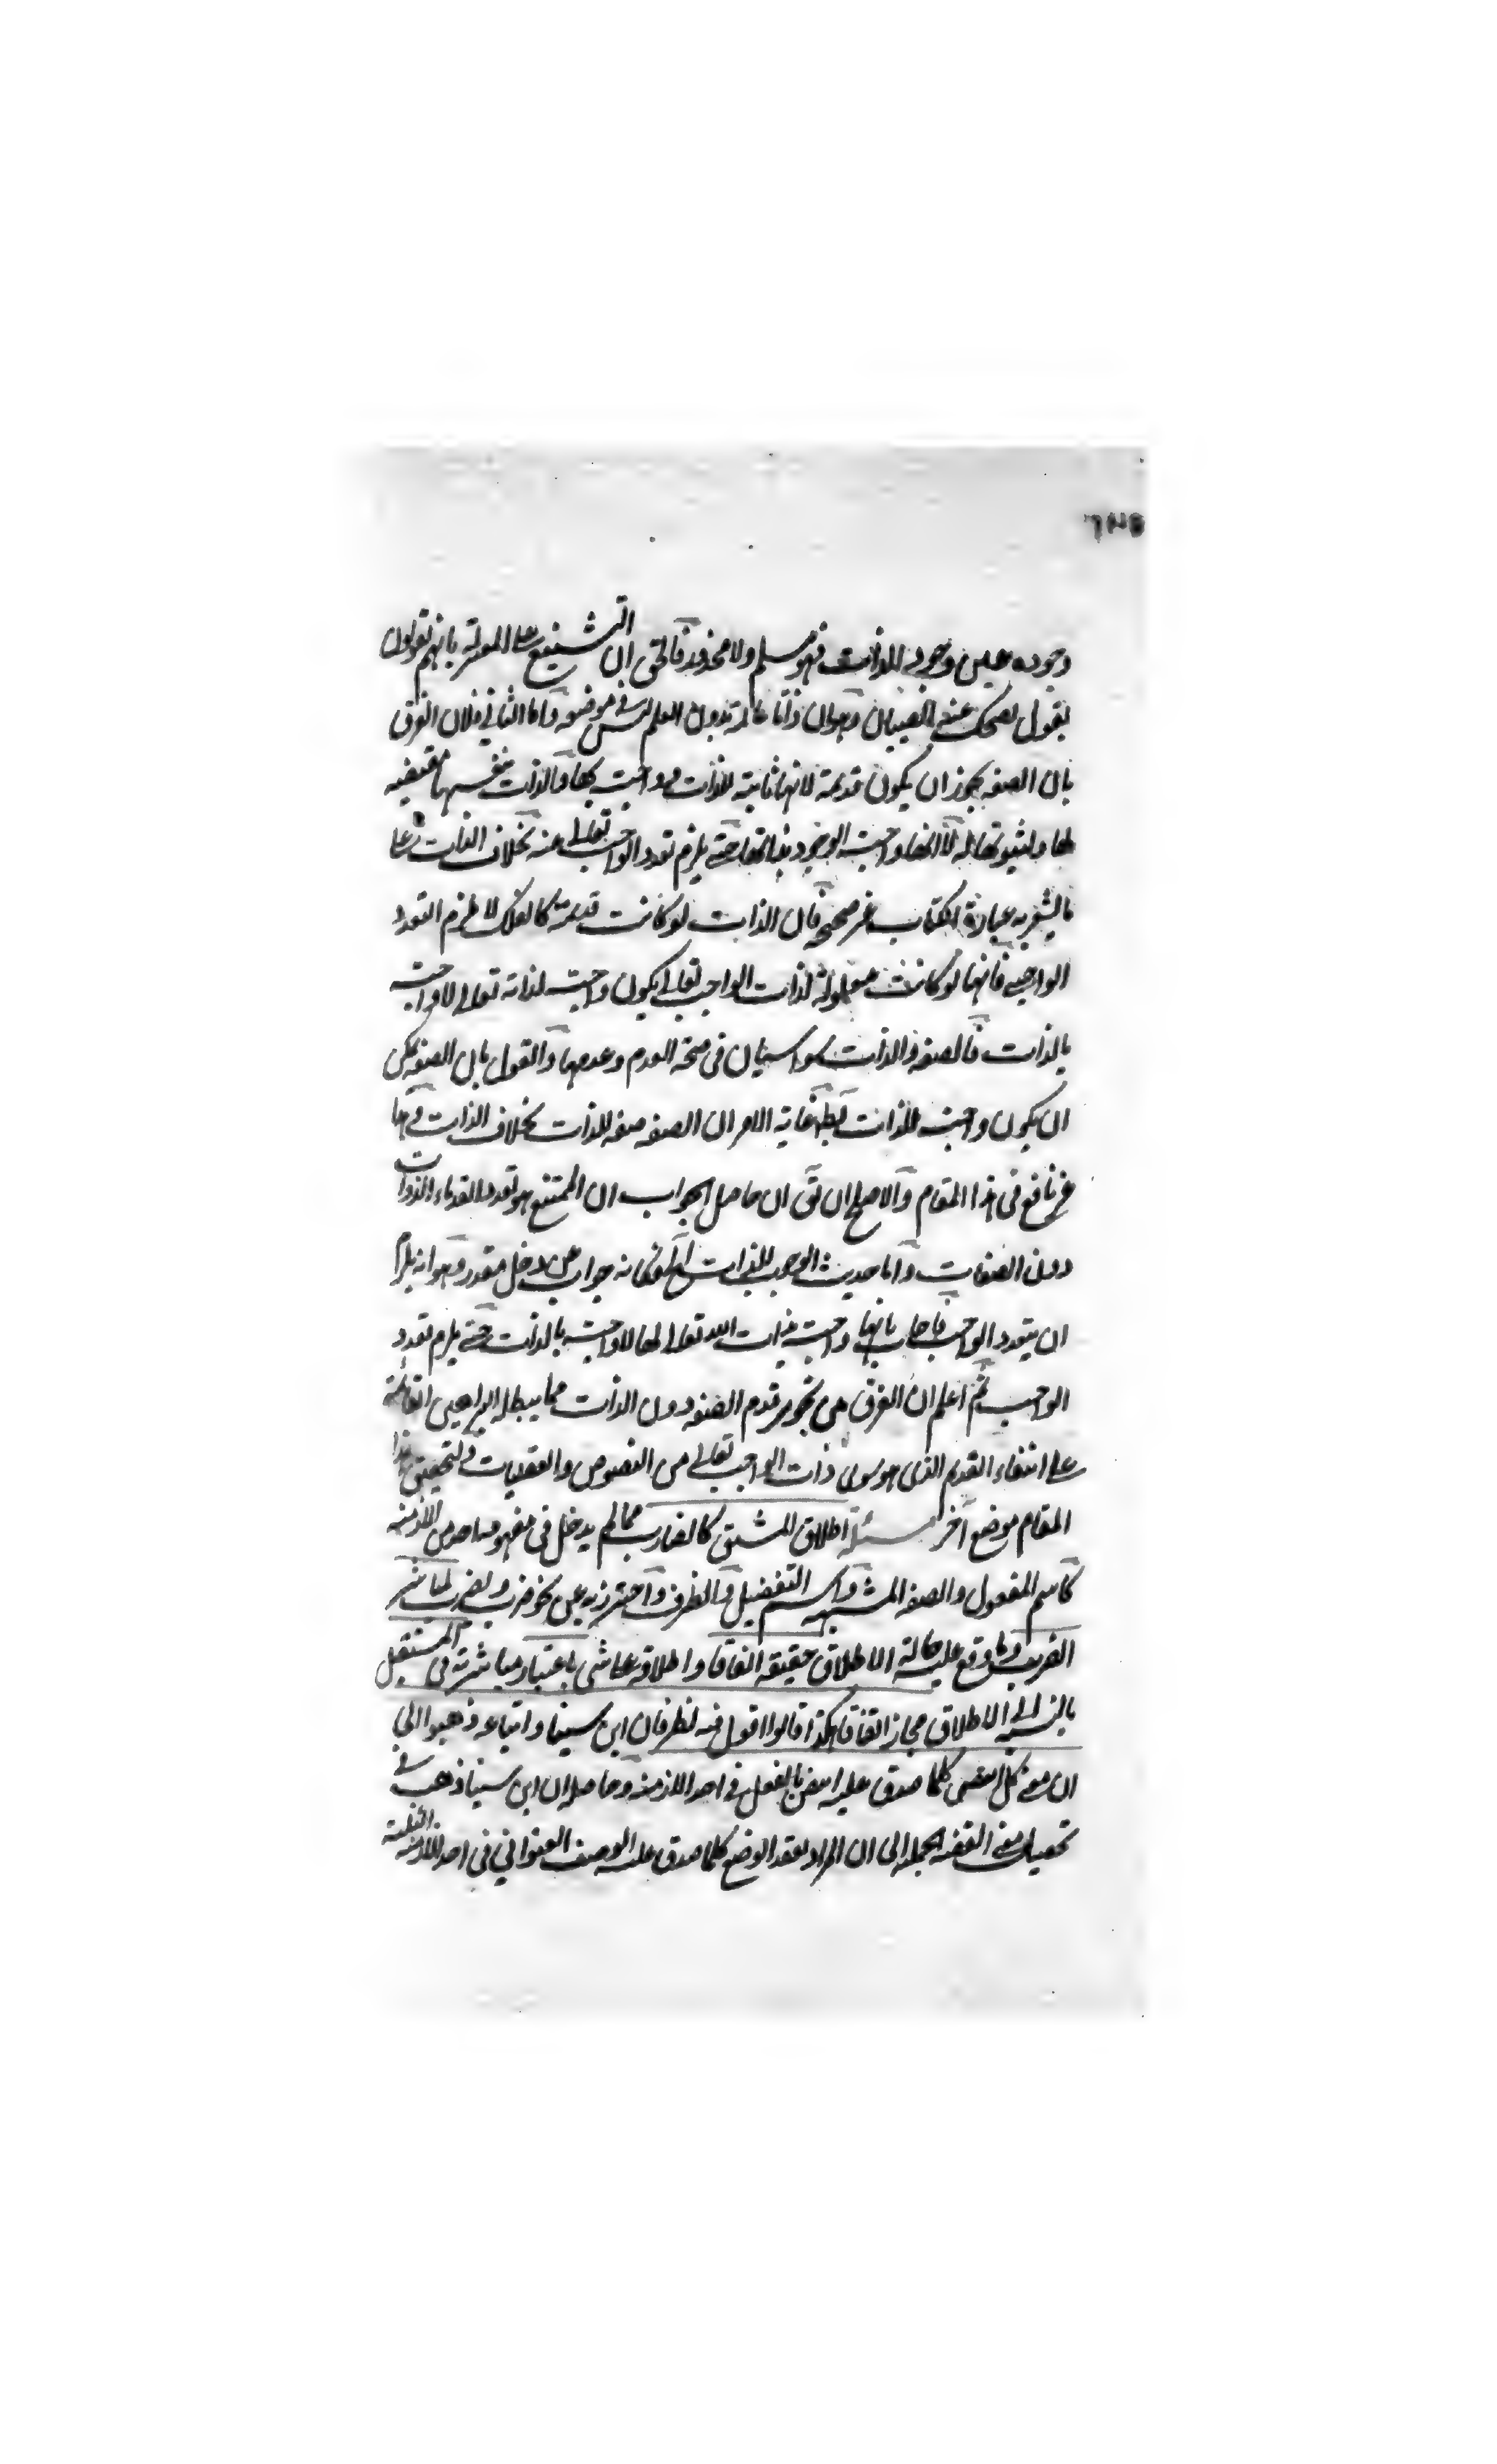 ٦٣٥
وجوده عين وجود للذات فهو مسلم ولا محذور فالحق ان التشنيع على المعتزلة بانهم يقولون
بقول يضحك عنه الصبيان وهو ان ذاتا عالمة بدون العلم ليس في موضعه واما الثاني فلان الفرق
بان الصفة يجوز ان يكون قديمة لانها ثابتة للذات وواجبة بها والذات بنفسها مقتضيه
لها ولثبوتها له لا انها واجبة الوجود بذاتها حتى يلزم تعدد الواجب تعالى عنه بخلاف الذات على
ما يشعر به عبارة الكتاب غير صحيح فان الذات لو كانت قديمة كالفلك لا يلزم التعدد
الواجب فانها لو كانت معلولة لذات الواجب تعالى يكون واجبة لذاته تعالى لا واجبة
بالذات فالصفة والذات سواسيان في صحة القدم وعدمها والقول بان الصفة يمكن
ان يكون واجبة للذات غاية الامر ان الصفة صفة للذات بخلاف الذات
غير نافع في هذا المقام والاصلح ان يق ان حاصل الجواب ان الممتنع هو تعدد القدماء الذوات
دون الصفات واما حديث الوجوب للذات فكانه جواب عن دخل مقدر وهو انه يلزم
ان يتعدد الواجب فاجاب بانها واجبة بذات الله تعالى لها لا واجبة بالذات حتى يلزم تعدد
الواجب ثم اعلم ان الفرق من تجويز قدم الصفة دون الذات مما يبطله البراهين القائمة
على انتفاء القديم الذي هو سوى ذات الواجب تعالى من النصوص والعقليات ولتحقيق هذا
المقام موضع آخر مسئلة اطلاق المشتق كالضارب مما لم يدخل في مفهومه احد من الازمنة
كاسم المفعول والصفة المشبهة واسم التفضيل والظرف واحترز به عن نحو ضرب ويضرب لمباشر
الضرب ولما وقع عليه حالة الاطلاق حقيقة اتفاقا واطلاقه على شي باعتبار مباشرته في المستقبل
بالنسبة الى الاطلاق مجاز اتفاقا هكذا قالوا اقول فيه نظر فان ابن سينا واتباعه ذهبوا الى
ان معنى كل ابيض كلما صدق عليه ابيض بالفعل في احد الازمنة وحاصله ان ابن سينا ذهب في
تحصيل معنى القضية الحملية الى ان المراد بعقد الوضع كلما صدق عليه الوصف العنواني في احد الازمنة الثلثة